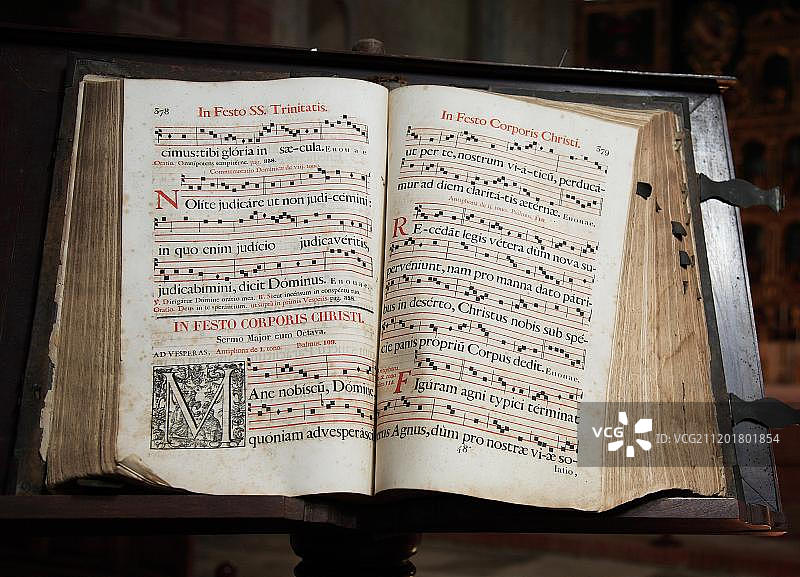 578
In Festo SS. Trinitatis.
cimus: tibi glória in sæ-cula. E u o u a e
Oratio. Omnipotens sempiterne. pag. 358.
Commemoratio Dominicæ de viij. tono.
NOlíte judicáre ut non judi-cémini:
in quo enim judício judicavéritis,
judicabímini, dicit Dominus. E u o u a e.
℣. Dirigatur Domine oratio mea. ℟. Sicut incénsum in conspéctu tuo.
Oratio. Deus in te sperantium, ut supra in primis Vesperis pag. 358.
IN FESTO CORPORIS CHRISTI.
Sermo Major cum Octava.
AD VESPERAS. Antiphona de 1. tono. Psalmus 109.
MAnc nobiscũ, Domine
quoniam advesperásc
In Festo Corporis Christi.
579
ut per te, nostrum vi-a-ticũ, perducá-
mur ad diem claritá-tis ætérnæ. E u o u a e.
Antiphona de ij. tono. Psalmus 110.
RE-cédat legis vétera dum nova su-
pervéniunt, nam pro manna dato patri-
bus in desérto, Christus nobis sub spé-
cie panis própriũ Corpus dedit. E u o u a e.
FIgúram agni týpici términat
rus Agnus, dùm pro nostræ vi-æ so-
48*
latio,
VCG
VCG
ID: VCG211201801854